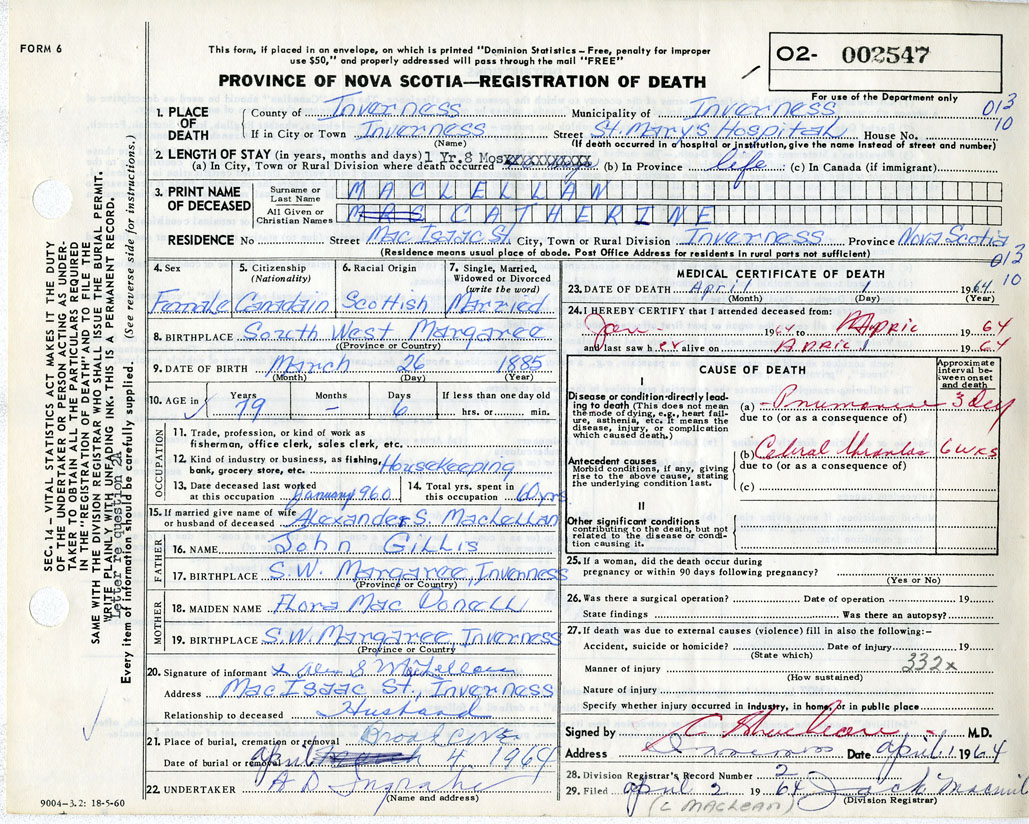 FORM 6
This form, if placed in an envelope, on which is printed "Dominion Statistics – Free, penalty for improper
use $50," and properly addressed will pass through the mail "FREE"
PROVINCE OF NOVA SCOTIA—REGISTRATION OF DEATH
O2- 002547
For use of the Department only
013
10
1. PLACE OF DEATH
County of Inverness Municipality of Inverness
If in City or Town Inverness Street St. Mary's Hospital House No.
(Name) (If death occurred in a hospital or institution, give the name instead of street and number)
2. LENGTH OF STAY (in years, months and days) 1 Yr. 8 Mos
(a) In City, Town or Rural Division where death occurred (b) In Province life (c) In Canada (if immigrant)
3. PRINT NAME OF DECEASED
Surname or Last Name MACLELLAN
All Given or Christian Names MRS CATHERINE
RESIDENCE No Street Mac Isaac St. City, Town or Rural Division Inverness Province Nova Scotia
(Residence means usual place of abode. Post Office Address for residents in rural parts not sufficient)
013
10
4. Sex 5. Citizenship (Nationality) 6. Racial Origin 7. Single, Married, Widowed or Divorced (write the word)
Female Canadain Scottish Married
8. BIRTHPLACE South West Margaree
(Province or Country)
9. DATE OF BIRTH March 26 1885
(Month) (Day) (Year)
10. AGE in Years Months Days If less than one day old
79 – 6 hrs. or min.
OCCUPATION
11. Trade, profession, or kind of work as
fisherman, office clerk, sales clerk, etc.
12. Kind of industry or business, as fishing,
bank, grocery store, etc. Housekeeping
13. Date deceased last worked
at this occupation January 1960
14. Total yrs. spent in
this occupation 60 yrs
15. If married give name of wife
or husband of deceased Alexander S. MacLellan
FATHER
16. NAME John Gillis
17. BIRTHPLACE S.W. Margaree, Inverness
(Province or Country)
MOTHER
18. MAIDEN NAME Flora Mac Donell
19. BIRTHPLACE S.W. Margaree, Inverness
(Province or Country)
20. Signature of informant x Alex S McLellan
Address Mac Isaac St., Inverness
Relationship to deceased Husband
21. Place of burial, cremation or removal Broad Cove
Date of burial or removal April 4 1964
22. UNDERTAKER A D Ingraham
(Name and address)
9004–3.2: 18-5-60
MEDICAL CERTIFICATE OF DEATH
23. DATE OF DEATH April 1 1964
(Month) (Day) (Year)
24. I HEREBY CERTIFY that I attended deceased from:
Jan 1964 to April 1964
and last saw her alive on APRIL 1 1964
CAUSE OF DEATH
Approximate interval between onset and death
I
Disease or condition directly leading to death (This does not mean the mode of dying, e.g., heart failure, asthenia, etc. It means the disease, injury, or complication which caused death.)
(a) Pnumonia 3 Day
due to (or as a consequence of)
Antecedent causes
Morbid conditions, if any, giving rise to the above cause, stating the underlying condition last.
(b) Cebral thrombos 6 WKS
due to (or as a consequence of)
(c)
II
Other significant conditions
contributing to the death, but not related to the disease or condition causing it.
25. If a woman, did the death occur during
pregnancy or within 90 days following pregnancy?
(Yes or No)
26. Was there a surgical operation? Date of operation 19
State findings Was there an autopsy?
27. If death was due to external causes (violence) fill in also the following:–
Accident, suicide or homicide? Date of injury 19
(State which)
332x
Manner of injury
(How sustained)
Nature of injury
Specify whether injury occurred in industry, in home, or in public place
Signed by M.D.
Address Inverness Date April 1 1964
28. Division Registrar's Record Number 2
29. Filed April 2 1964 Jack
(C MACLEAN) (Division Registrar)
SEC. 14 – VITAL STATISTICS ACT MAKES IT THE DUTY
OF THE UNDERTAKER OR PERSON ACTING AS UNDER-
TAKER TO OBTAIN ALL THE PARTICULARS REQUIRED
IN THE "REGISTRATION OF DEATH" AND TO FILE THE
SAME WITH THE DIVISION REGISTRAR WHO SHALL ISSUE THE BURIAL PERMIT.
WRITE PLAINLY WITH UNFADING INK. THIS IS A PERMANENT RECORD.
Letter re question 2A
Every item of information should be carefully supplied. (See reverse side for instructions.)